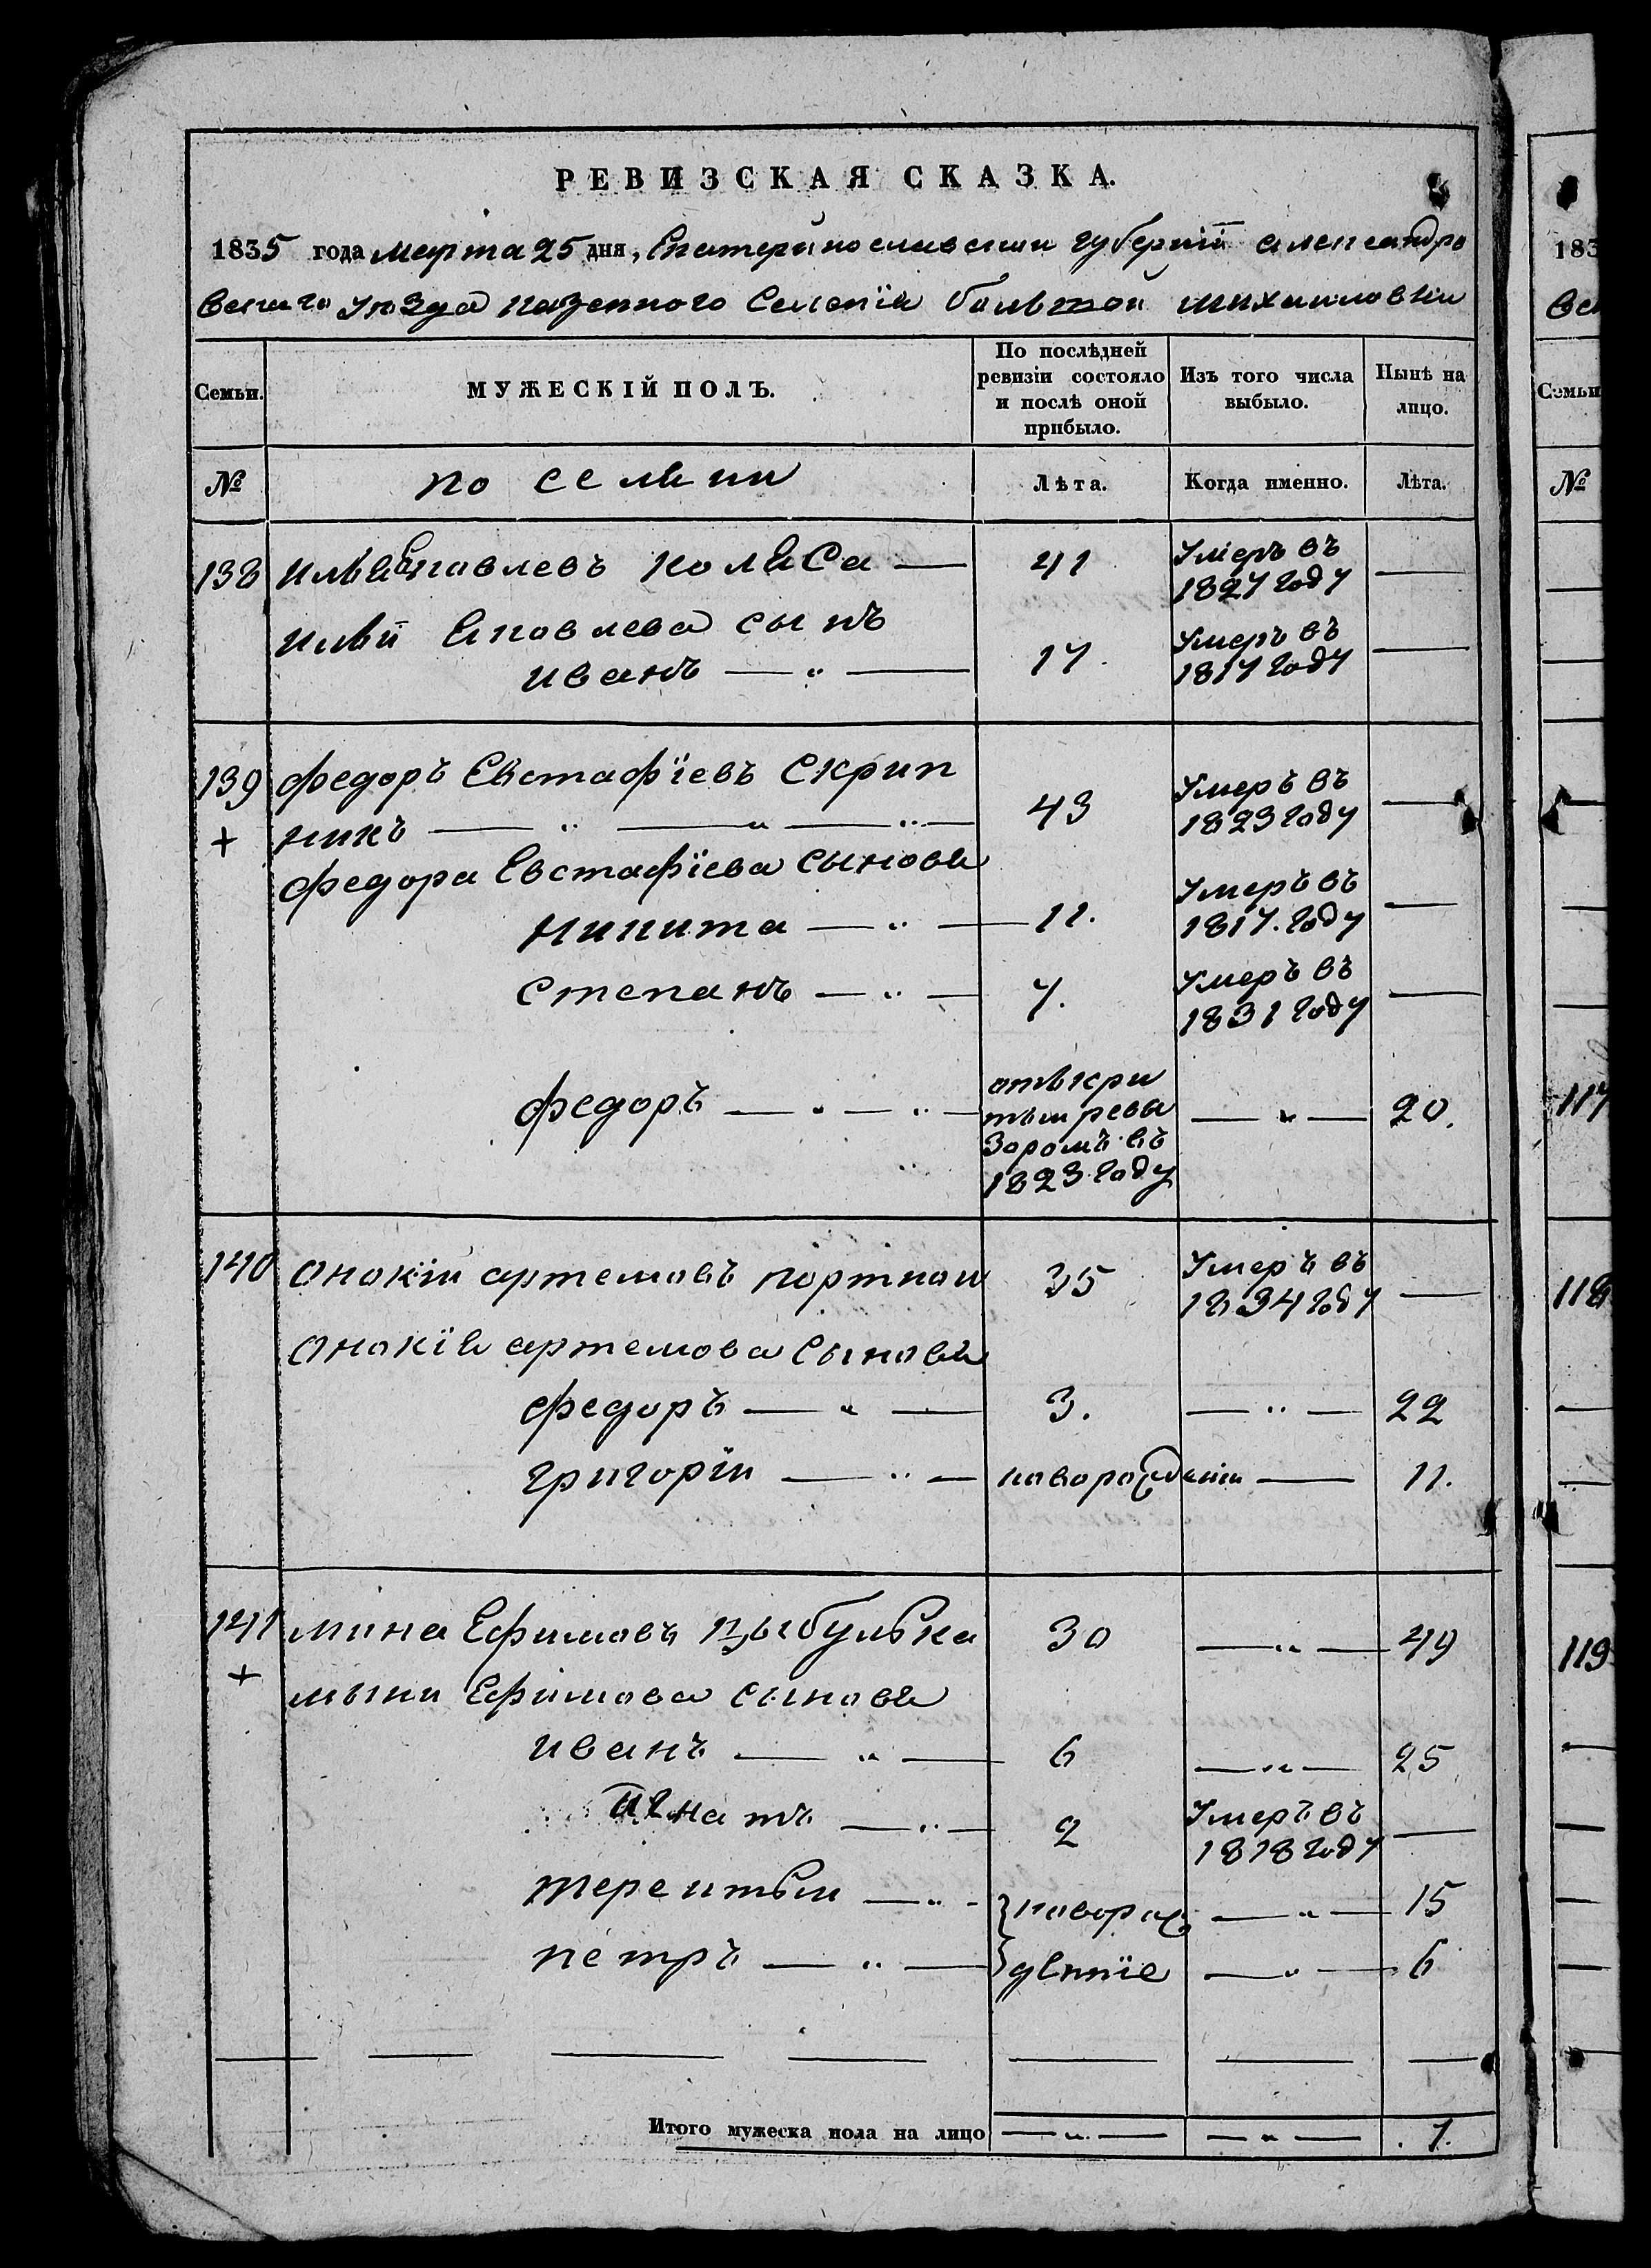 РЕВИЗСКАЯ СКАЗКА.
1835 года марта 25 дня, Екатеринославской губернїй александро
вскаго уѣзда казенного Селенїя большой михайловки
Семьи. МУЖЕСКІЙ ПОЛЪ. По послѣдней ревизіи состояло и послѣ оной прибыло. Изъ того числа выбыло. Нынѣ на лицо.
№ по семьи Лѣта. Когда именно. Лѣта.
138 илья яковлевъ Коляса — 41 Умеръ въ 1827 году —
ильи Яковлева сынъ
иванъ — " — 17. Умеръ въ 1817 году —
139 федоръ Евстафїевъ Скрип
+ никъ — " — " — " — 43 Умеръ въ 1823 году —
федора Евстафїева сыновья
никита — " — 11. Умеръ въ 1817. году —
степанъ — " — 7. Умеръ въ 1831 году —
федоръ — " — " — отькри
тым реви — " — 20.
зоромъ въ
1823 году
140 онокїи артемовъ портнои 35 Умеръ въ 1834 году —
онокїя артемова сыновья
федоръ — " — 3. — " — 22
григорїи — " — новорожденїи — 11.
141 мина Ефимовъ цыбулька 30 — " — 49
+ мыни Ефимова сыновья
иванъ — " — 6 — " — 25
Игнатъ — " — 2 Умеръ въ 1818 году —
терентьи — " - } новорож — " — 15
петръ — " — } деннїе — " — 6
Итого мужеска пола на лицо — " — — " — . 7.
183
вс
Семьи
№
117
118
119